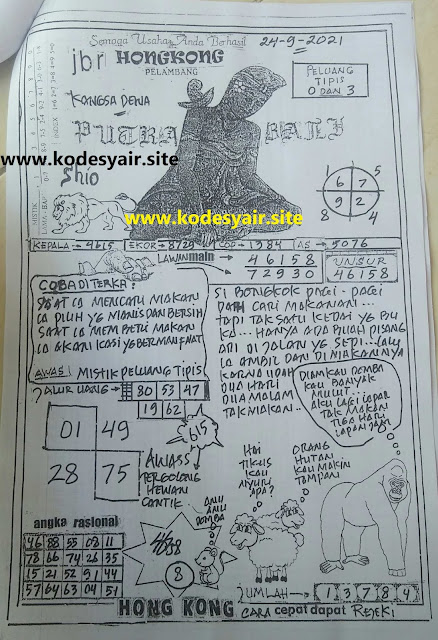 Semoga Usaha Anda Berhasil
24-9-2021
jbr HONGKONG
PELAMBANG
PELUANG
TIPIS
0 DAN 3
KANGSA DEWA
PUTRA BALI
www.kodesyair.site
Shio
www.kodesyair.site
1
6 7
9 2
8 5
4
KEPALA = 4615 EKOR = 8729 COP = 1384 AS = 5076
LAWAN main
46158
72930
UNSUR
46158
COBA DITERKA:
SAAT IA MENCARI MAKAN
IA PILIH YG MANIS DAN BERSIH
SAAT IA MEMBERI MAKAN
IA AKAN KASI YG BERMANFAAT
SI BONGKOK PAGI - PAGI
DAH CARI MAKANAN...
TAPI TAK SATU KEDAI YG BU
KA... HANYA ADA BUAH PISANG
ARI DI JALAN YG SEPI... LALU
IA AMBIL DAN DIMAKANNYA
KARNA UDAH
DUA HARI
DUA MALAM
TAK MAKAN..
AWAS! MISTIK PELUANG TIPIS
JALUR UANG: 80 53 47
19 62
01 49
28 75
615
AWASS
TERGOLONG
HEWAN
CANTIK
DIAM KAU DOMBA
KAU BANYAK
MULUT...
AKU LAGI LAPAR
TAK MAKAN
TIGA HARI
LAPAN JAM
HAI
TIKUS
KAU
NYURI
APA?
ORANG
HUTAN
KAU MAKIN
TAMPAN
ANU
ANU
DOMBA
8
angka rasional
46 88 55 08 11
78 66 74 26 35
15 21 52 91 44
57 64 63 04 51
JUMLAH 1 3 7 8 4
HONG KONG CARA cepat dapat REJEKI